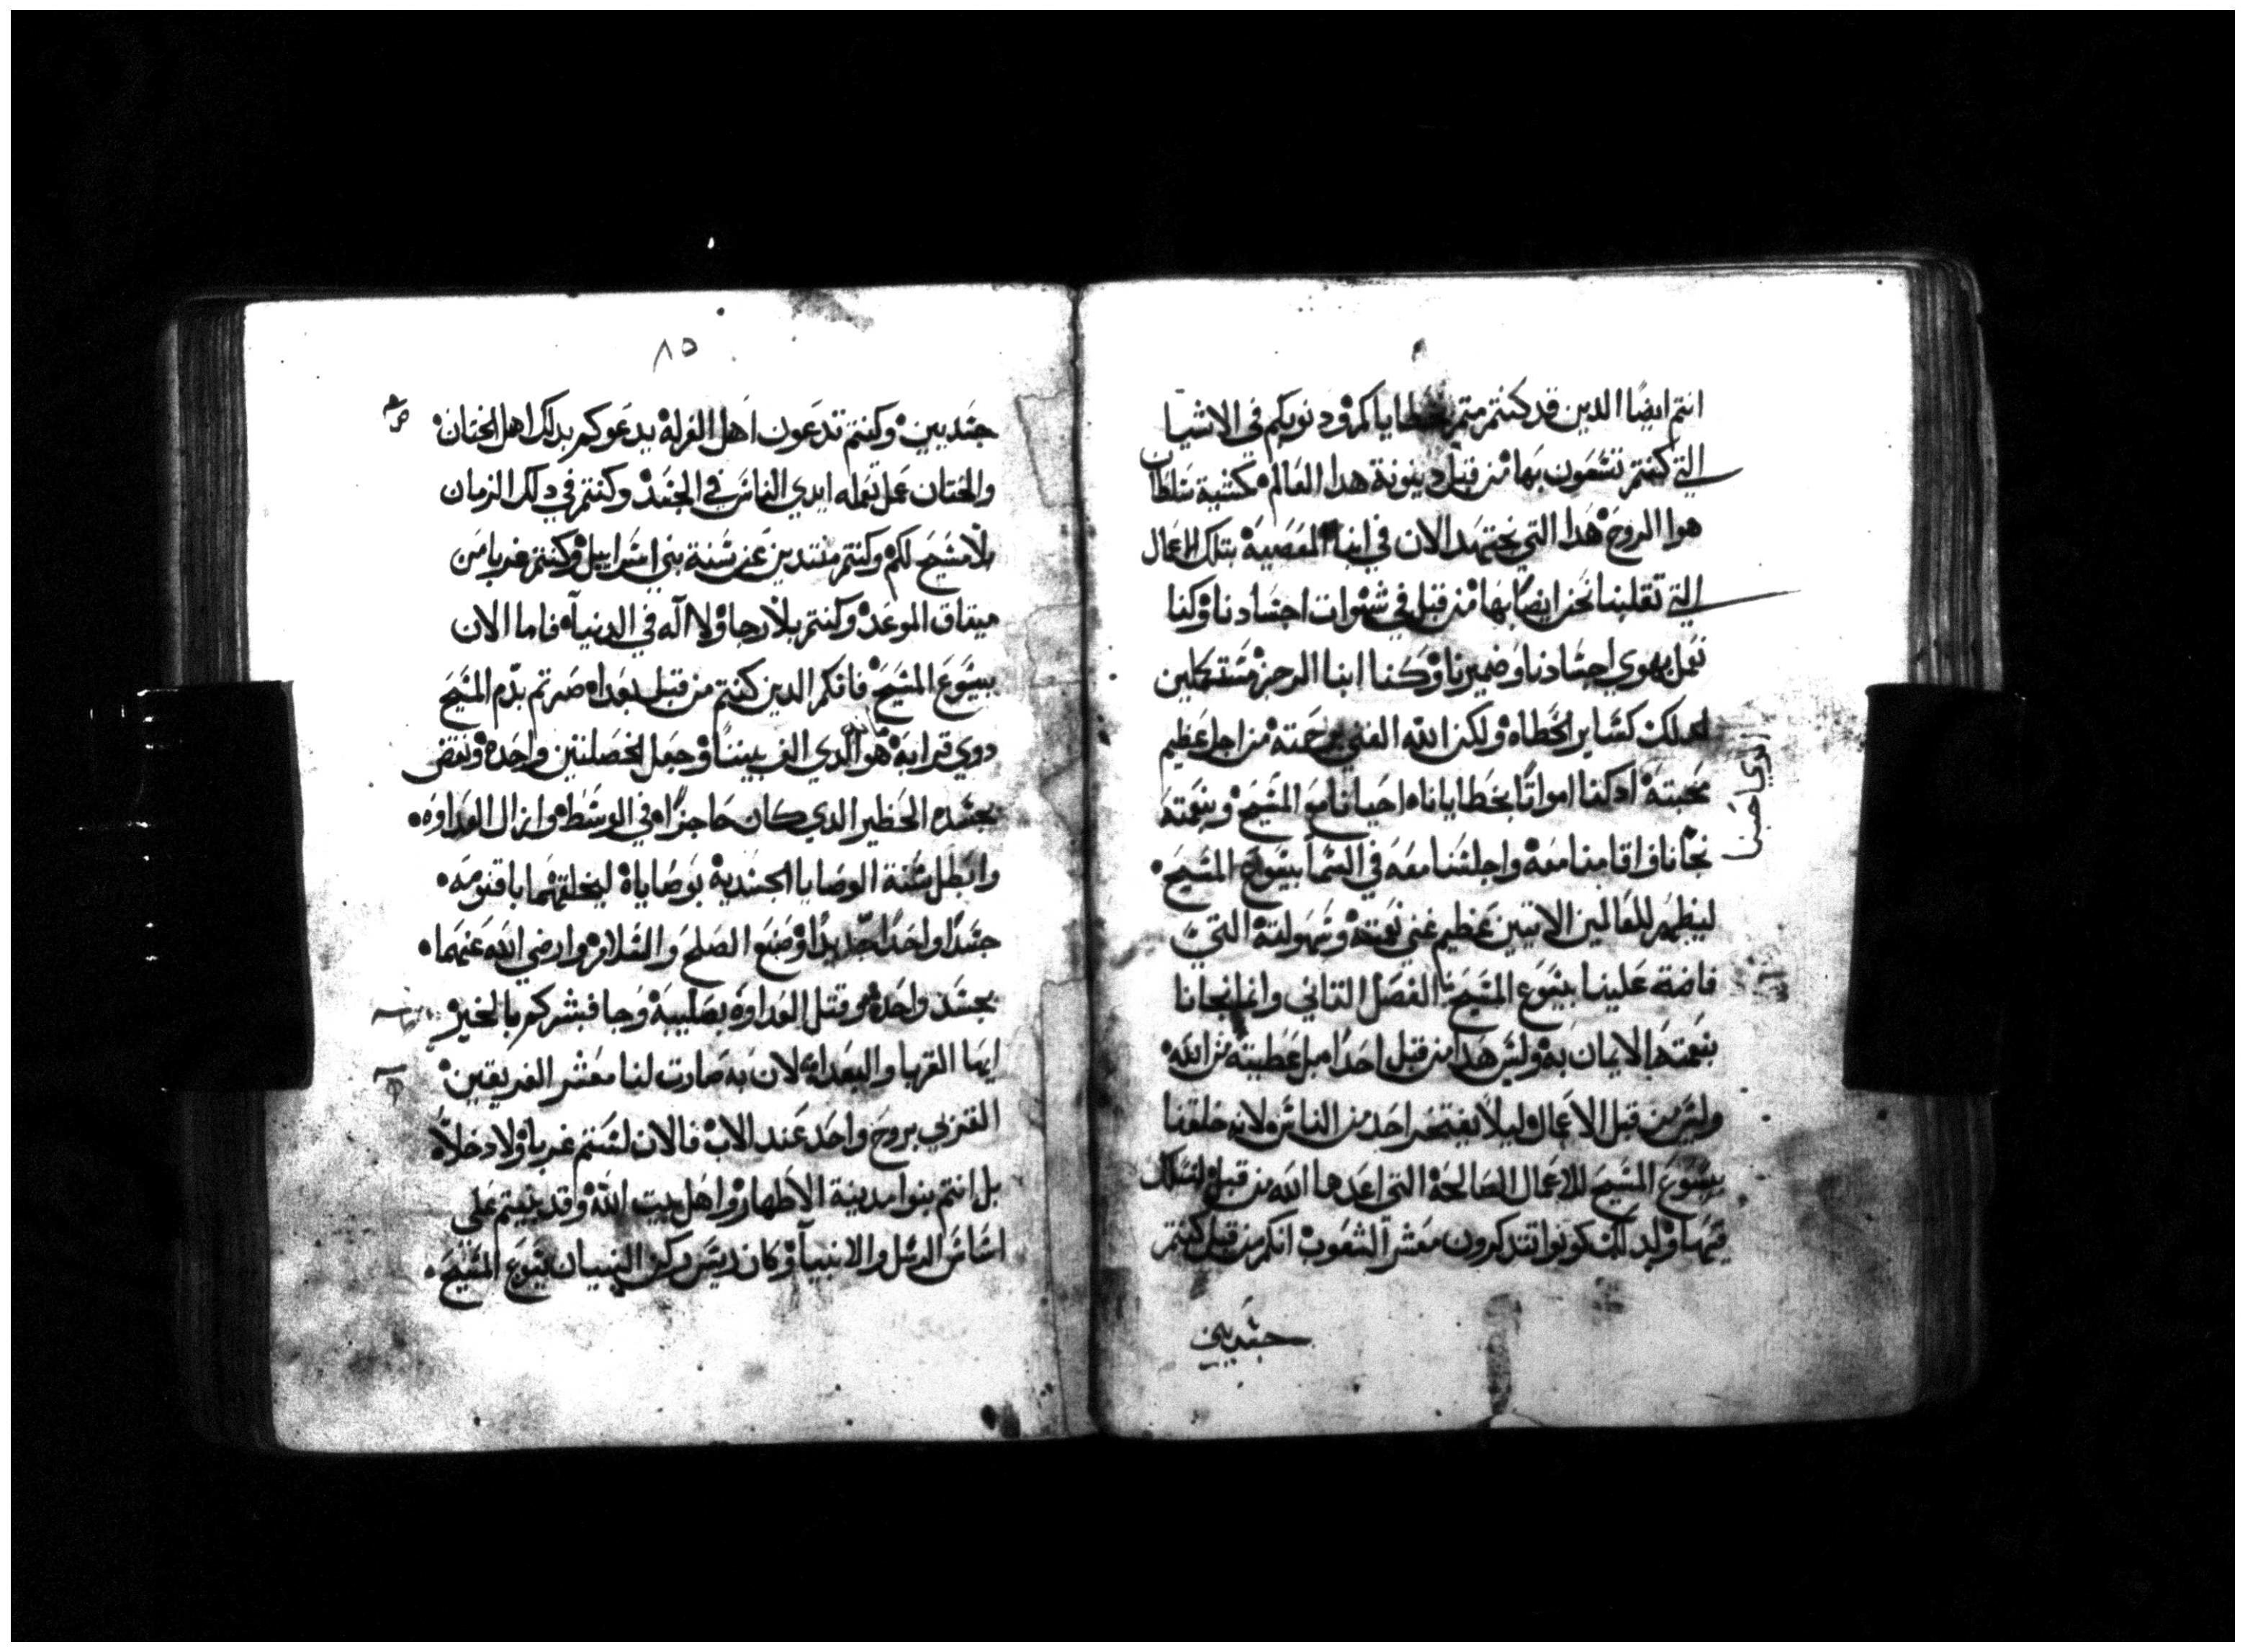 انتم ايضًا الدين قد كنتم متم بخطاياكم ودنوبكم في الاشيا
التي كنتم تسعون بها من قبل دينونة هدا العالم كمشية سلطان
هوا الروح هدا التي يجتهد الان في ابنا المعصية بتلك الاعمال
التي تقلبنا نحن ايضًا بها من قبل في شهوات اجسادنا وكنا
نعمل بهوي اجسادنا وضميرنا وكنا ابنا الرجز مستكملين
لدلك كساير الخطاه ولكن الله الغني برحمته من اجل عظيم
محبته ادكنا امواتًا بخطايانا احيانا مع المسيح وبنعمته
نجانا واقامنا معه واجلسنا معه في السما بيسوع المسيح
ليظهر للعالمين الاتيين عظيم غني نعمته وسهولته التي
فاضة علينا بيسوع المسيح الفصل التاني وانما نجانا
بنعمته الايمان به وليس هدا من قبل احدًا بل عطية من الله
وليس من قبل الاعمال ليلا يفتخر احد من الناس لانه خلقنا
بيسوع المسيح للاعمال الصالحة التي اعدها الله من قبل لنسلك
فيها ولدلك كونوا تتدكرون معشر الشعوب انكم من قبل كنتم
جسديين
الذي احبنا
٨٥
جسديين وكنتم تدعون اهل الغرلة يدعوكم بدلك اهل الختان
والختان عمل تعمله ايدي الناس في الجسد وكنتم في دلك الزمان
بلا مسيح لكم وكنتم منتدين عن سنة بني اسراييل وكنتم غربا من
ميتاق الموعد وكنتم بلا رجا ولا اله في الدنيا فاما الان
بيسوع المسيح فانكم الدين كنتم من قبل بعدا صرتم بدم المسيح
دوي قرابة هو الدي الف بيننا وجعل الخصلتين واحدة ونقض
بجسده الحظير الدي كان حاجزًا في الوسط وازال العداوة
وابطل سنة الوصايا الجسدية بوصاياه ليخلقهما باقنومه
جسدًا واحدًا جديدًا وصنع الصلح والسلام وارضي الله عنهما
بجسد واحد وقتل العداوة بصليبه وجا فبشركم بالخير
ايها القربا والبعدا لان به صارت لنا معشر الفريقين
القربي بروح واحد عند الاب فالان لستم غربا ولا دخلا
بل انتم بنوا مدينة الاطهار واهل بيت الله وقد بنيتم علي
اساس الرسل والانبيا وكان ريس ركن البنيان يسوع المسيح